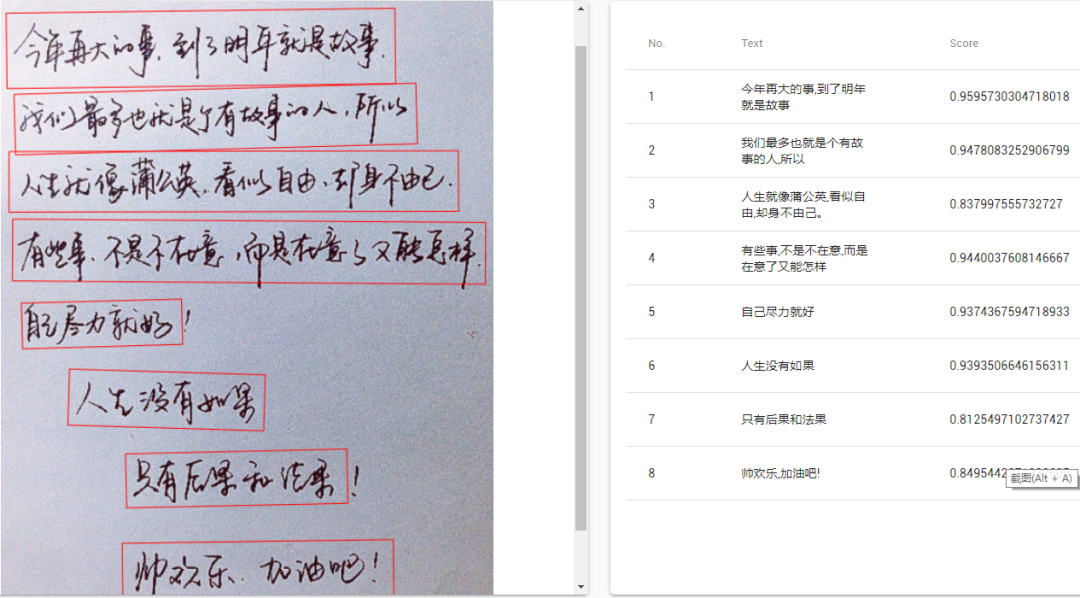 今年再大的事,到了明年就是故事.
我们最多也就是个有故事的人,所以
人生就像蒲公英.看似自由,却身不由己.
有些事.不是不在意,而是在意了又能怎样.
自己尽力就好!
人生没有如果
只有后果和结果!
帅欢乐.加油吧!
No. Text Score
1 今年再大的事,到了明年就是故事 0.9595730304718018
2 我们最多也就是个有故事的人,所以 0.9478083252906799
3 人生就像蒲公英,看似自由,却身不由己。 0.837997555732727
4 有些事,不是不在意,而是在意了又能怎样 0.9440037608146667
5 自己尽力就好 0.9374367594718933
6 人生没有如果 0.9393506646156311
7 只有后果和法果 0.8125497102737427
8 帅欢乐,加油吧!
截图(Alt + A)